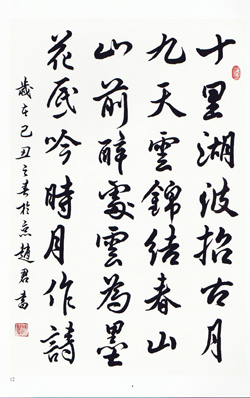 十里湖波招古月
九天雲錦結春山
山前醉處雲為墨
花底吟時月作詩
歲在己丑之春於京趙君書
12